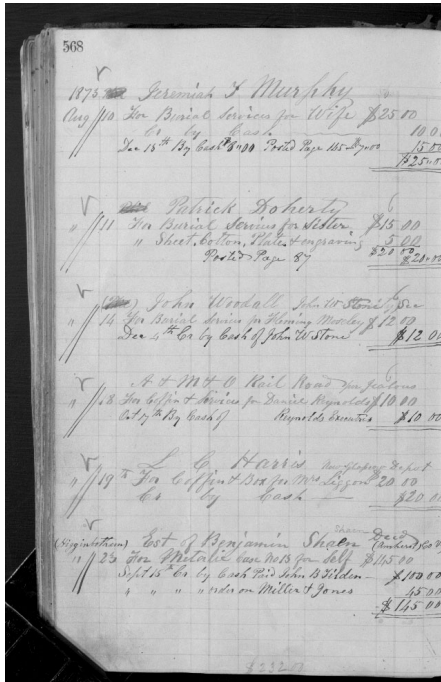 568
1873 Jeremiah F Murphy
Aug 10 For Burial Services for Wife $25 00
Cr by Cash 10 00
Dec 15th By Cash 8.00 Posted Page 185 7.00 15 00
$25 00
Patrick Doherty
" 11 For Burial Services for Sister $15 00
" Sheet, Cotton, Plate & engraving 5 00
Posted Page 87 $20 00 $20.00
John Woodall John W Stone
" 14 For Burial Services for Mosley $12 00
Dec 4th Cr by Cash of John W Stone $12 00
A & M & O Rail Road
" 18 For Coffin & Services for Daniel Reynolds $10 00
Oct 17th By Cash of Reynolds Executrix $10 00
L C Harris Depot
" 19th For Coffin & Box for Mrs Liggon 20.00
Cr by Cash $20 00
(Higginbotham) Est of Benjamin Paid
" 23 For Metalic Case No 13 for Self $145 00 (Amherst) Co
Sept 15th Cr by Cash Paid John B Tilden $100 00
" " " " order on Miller & Jones 45 00
$145 00
$232 00